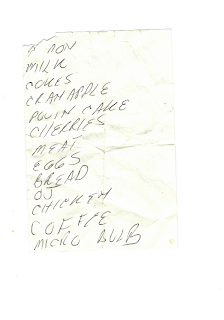 MILK
COKES
CRANAPPLE
CAKE
CHERRIES
MEAT
EGGS
BREAD
OJ
CHICKEN
COFFEE
MICRO BULB